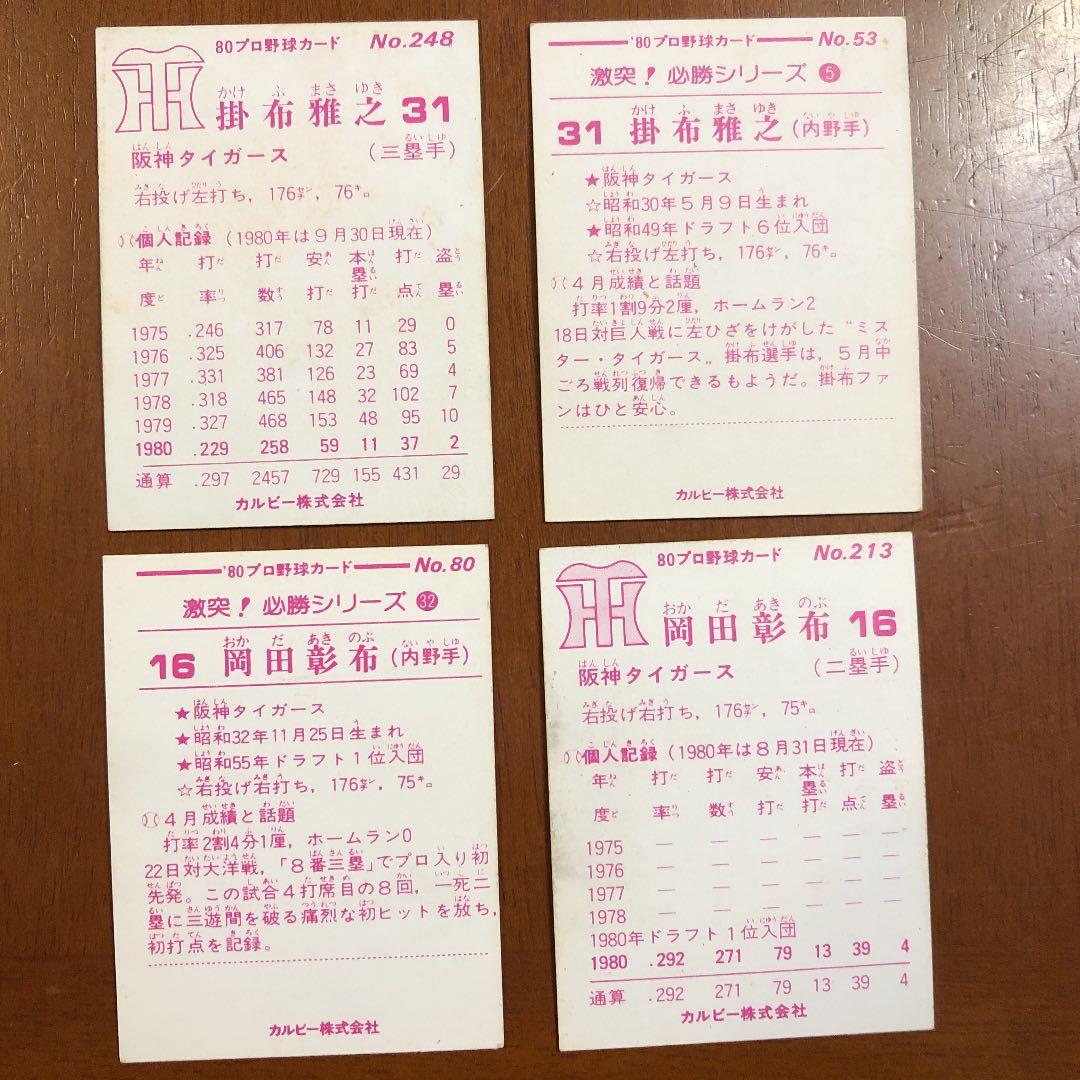 80プロ野球カード No.248
掛布雅之 31
かけ ふ まさ ゆき
阪神タイガース (三塁手)
右投げ左打ち, 176㌢, 76㌔。
個人記録 (1980年は9月30日現在)
年度 打率 打数 安打 本塁打 打点 盗塁
1975 .246 317 78 11 29 0
1976 .325 406 132 27 83 5
1977 .331 381 126 23 69 4
1978 .318 465 148 32 102 7
1979 .327 468 153 48 95 10
1980 .229 258 59 11 37 2
通算 .297 2457 729 155 431 29
カルビー株式会社
'80プロ野球カード No.53
激突！必勝シリーズ 5
かけ ふ まさ ゆき
31 掛布雅之 (内野手)
★阪神タイガース
☆昭和30年5月9日生まれ
★昭和49年ドラフト6位入団
☆右投げ左打ち, 176㌢, 76㌔。
4月成績と話題
打率1割9分2厘, ホームラン2
18日対巨人戦に左ひざをけがした“ミス
ター・タイガース„ 掛布選手は, 5月中
ごろ戦列復帰できるもようだ。掛布ファ
ンはひと安心。
カルビー株式会社
'80プロ野球カード No.80
激突！必勝シリーズ 32
おか だ あき のぶ
16 岡田彰布 (内野手)
★阪神タイガース
★昭和32年11月25日生まれ
★昭和55年ドラフト1位入団
☆右投げ右打ち, 176㌢, 75㌔。
4月成績と話題
打率2割4分1厘, ホームラン0
22日対大洋戦, 「8番三塁」でプロ入り初
先発。この試合4打席目の8回, 一死二
塁に三遊間を破る痛烈な初ヒットを放ち,
初打点を記録。
カルビー株式会社
80プロ野球カード No.213
おか だ あき のぶ
岡田彰布 16
阪神タイガース (二塁手)
右投げ右打ち, 176㌢, 75㌔。
個人記録 (1980年は8月31日現在)
年度 打率 打数 安打 本塁打 打点 盗塁
1975 — — — — — —
1976 — — — — — —
1977 — — — — — —
1978 — — — — — —
1980年ドラフト1位入団
1980 .292 271 79 13 39 4
通算 .292 271 79 13 39 4
カルビー株式会社